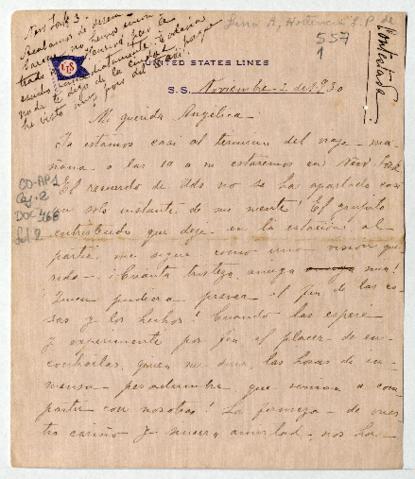 New York 3.
Acabamos de desem-
barcar no hemos
nada te digo de la ciudad porque
he visto muy poco del
557
1
Contestada
USL
UNITED STATES LINES
S.S. Noviembre - 2 de 1930
Mi querida Angélica -
Ya estamos casi al termino del viaje - ma-
ñana a las 10 a m estaremos en New York
El recuerdo de Uds no se ha apartado casi
un solo instante de mi mente! El grupito
entristecido que dejé en la estación al
partir me sigue como una visión que-
rida - ¡Cuanta tristeza, amiga mia!
Quien pudiera prever el fin de las co-
sas y los hechos! Cuando las esperé
y experimenté por fin el placer de en-
contrarlas, quien me diria, las horas de in-
mensa pesadumbre que venian a com-
partir con nosotras! La fineza de vues-
tro cariño y sincera amistad, nos ha
CO-AP1
Caj. 2
DOC 466
fol. 2